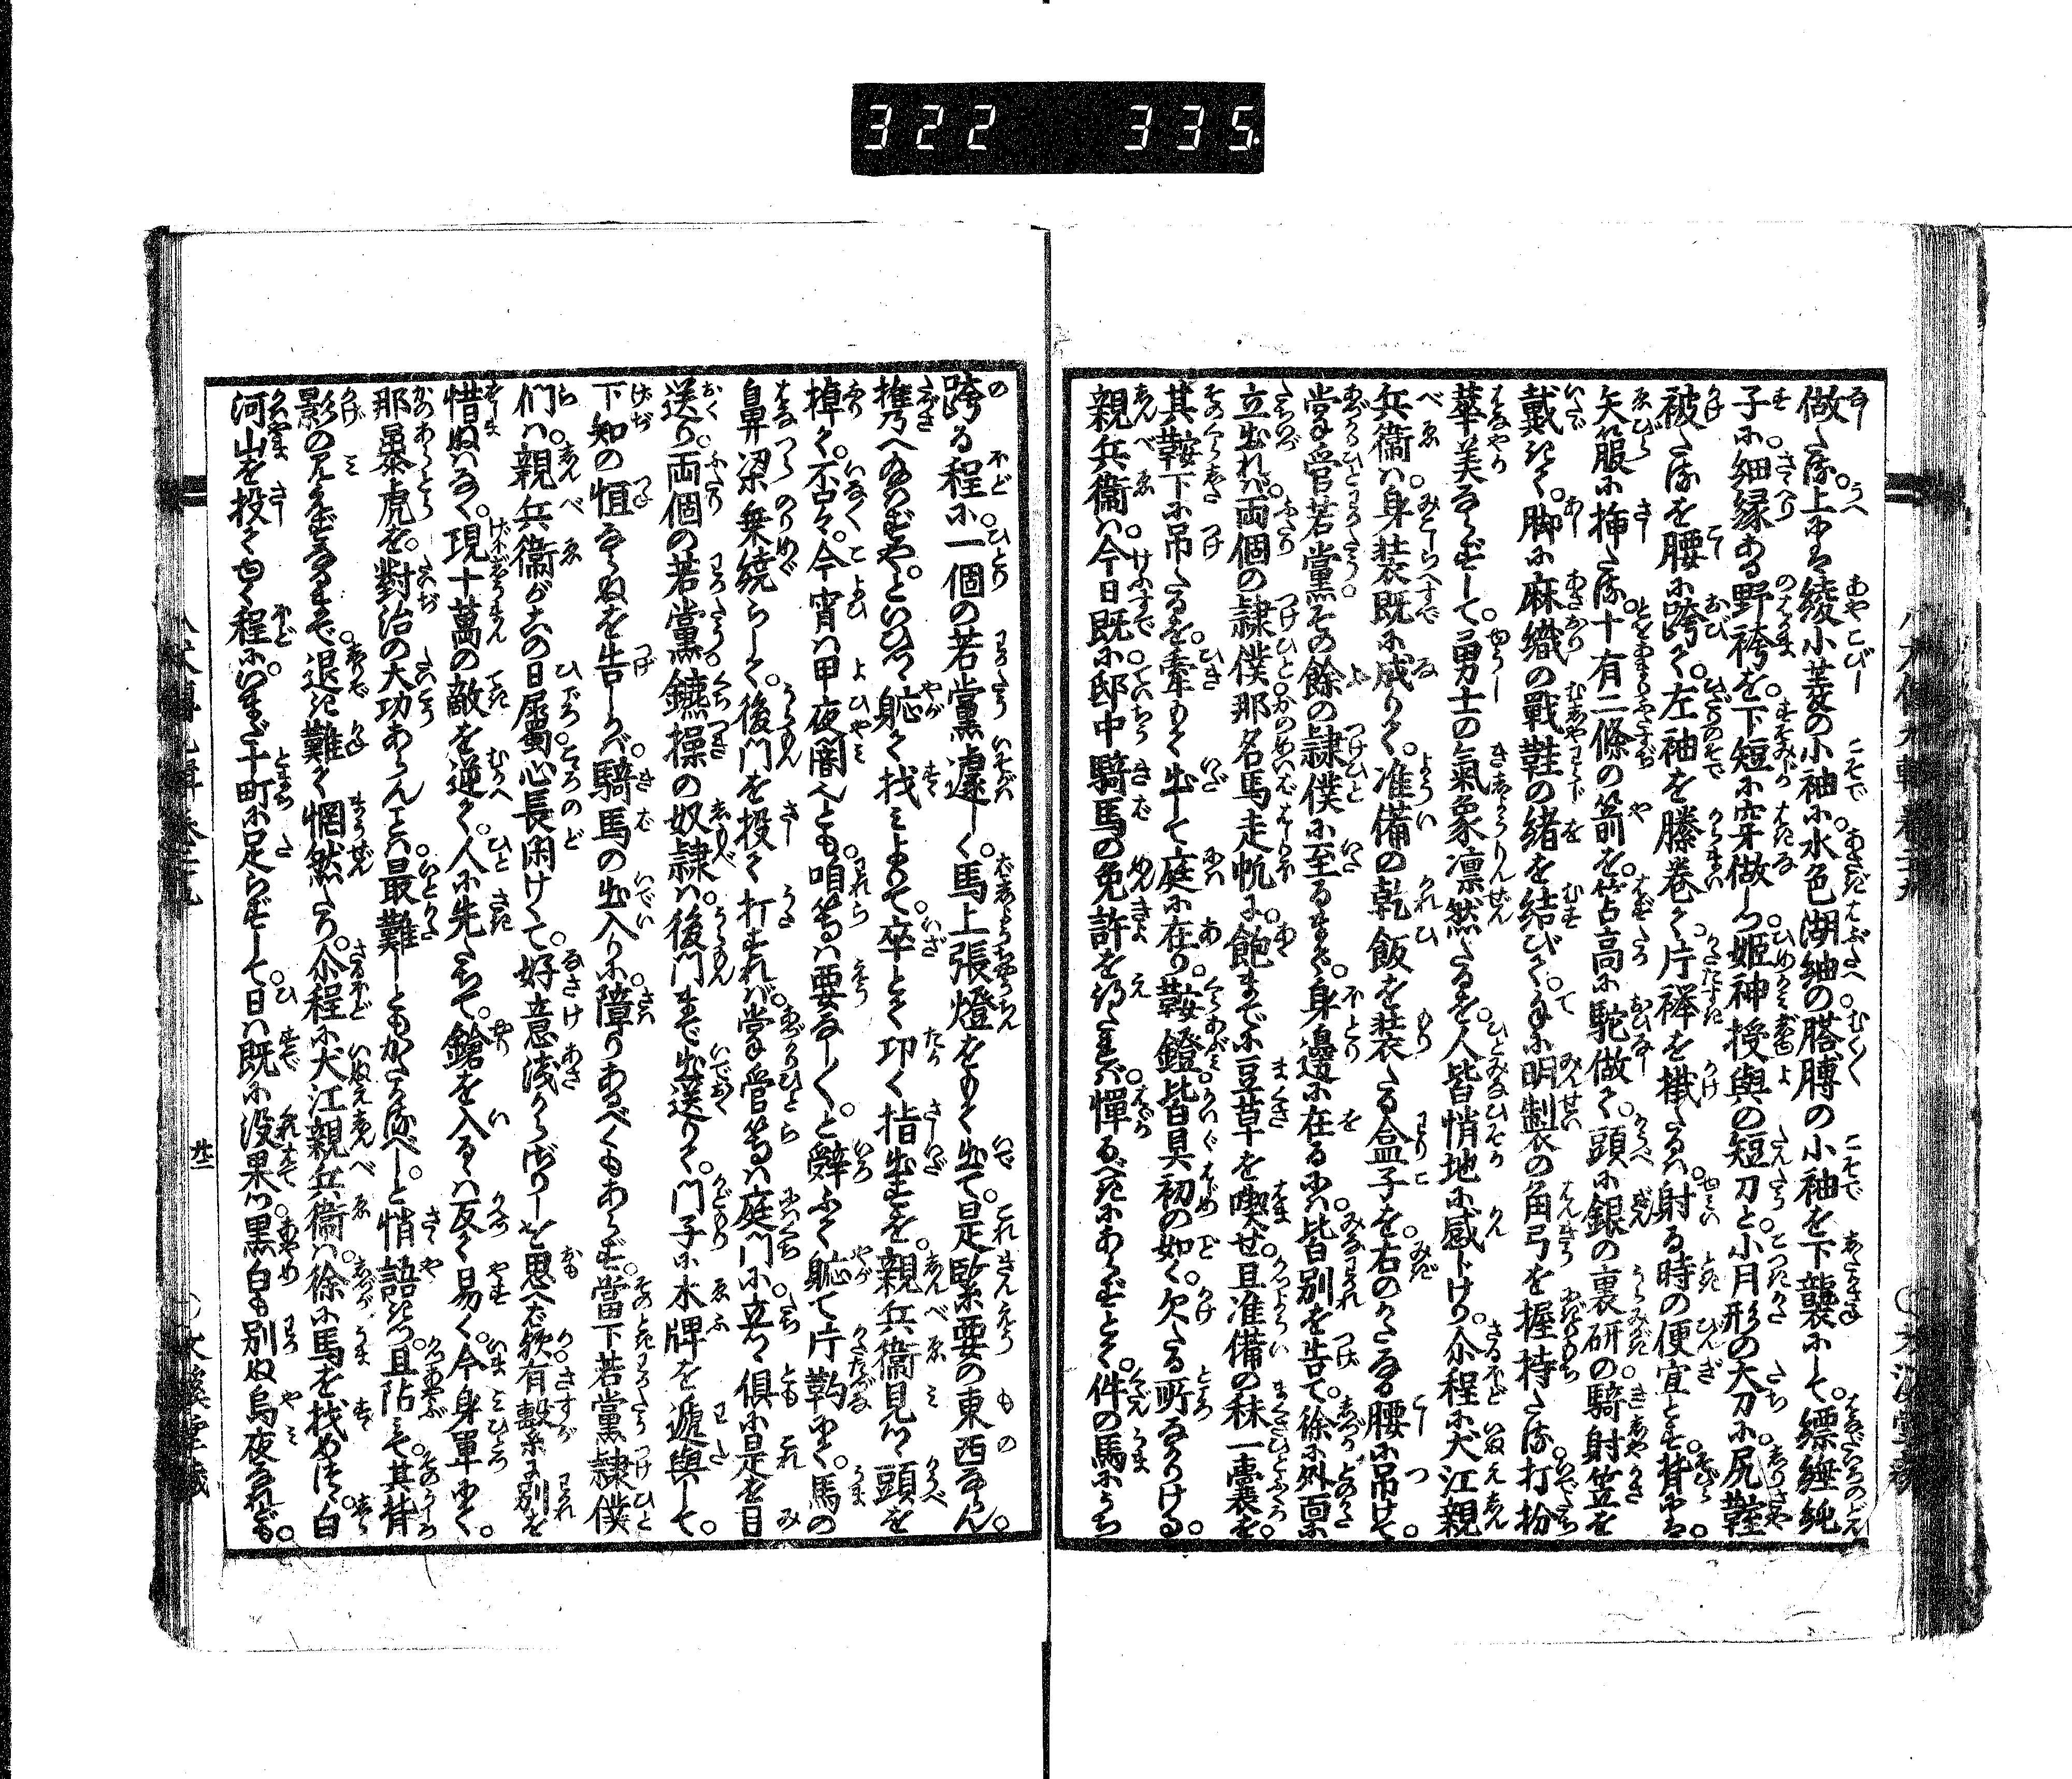 322 335
做たる。上には綾小菱の小袖に。水色湖紬の搭膊の小袖を下襲にして。縹纏純
子に細縁ある野袴を。下短に穿做しつ。姫神授與の短刀と。小月形の大刀に尻鞘
被たるを腰に跨て。左袖を縢巻て。片襷を掛たるは。射る時の便宜とす。背には
矢服に挿たる。十有二條の箭を。筈高に駝做て。頭に銀の裏研の。騎射笠を
戴きて。脚に麻織の戰鞋の緒を結びて。手に明製の角弓を握持たる。打扮
華美ならずして。勇士の氣象凛然たるを。人皆悄地に感じけり。尒程に犬江親
兵衞は。身装既に成りて。准備の乾飯を装たる盒子を。右のかたなる腰に吊けて。
掌管若黨。その餘の隷僕に至るまで。身邊に在るには。皆別を告て。徐に外面に
立出れは。両個の隷僕那名馬走帆に。飽まてに豆草を喫せ。且准備の秣一嚢を。
其鞍下に吊たるを。牽もて出して庭に在り。鞍鐙皆具初の如く。欠たる所なかりける。
親兵衞は。今日既に。邸中騎馬の免許を得たれば。憚るべきにあらずとて。件の馬にうち
跨る程に。一個の若黨遽しく。馬上張燈をもて出て。是緊要の東西ならん。
携へ給はずや。といひつゝ軈て找みよりて。卒とて叩く指出すを。親兵衞見つゝ頭を
掉て。否々。今宵は甲夜闇へとも。咱等は要なしく。と辭ふて軈て片鞆にて。馬の
鼻梁乗繞らして。後門を投て打すれば。掌管等は庭門に立つゝ。倶に是を目
送り。両個の若黨。鑣操の奴隷は。後門まで出送りて。門子に木牌を遞與して。
下知の恒ならぬを告しかば。騎馬の出入に障りあるべくもあらず。當下若黨隷僕
們は。親兵衞が六の日屬。心長閑けくて。好意淺からざりしを思へば。歎有繋に別を
惜ぬはなく。現十萬の敵を逆て。人に先たちて。鎗を入るゝは反て易く。今身單にて。
那暴虎を。對治の大功あらんことは。最難しともかたかるべし。と悄語きつゝ。且跕みて其背
影の見えずなるまで。退き難て惘然たり。尒程に犬江親兵衞は。徐に馬を找めつゝ。白
河山を投てゆく程に。いまだ十町に足らずして。日は既に没果つ。黒白も別ぬ烏夜なれども。
廿二